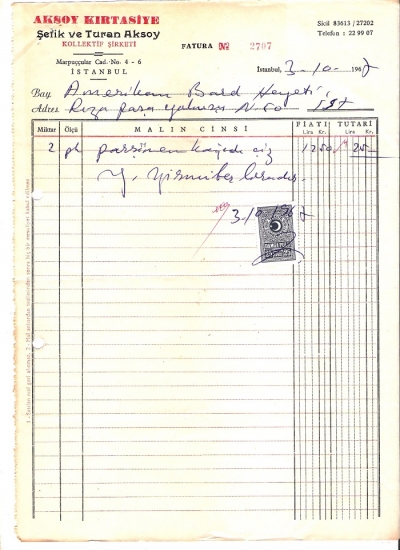 AKSOY KIRTASİYE
Şefik ve Turan Aksoy
KOLLEKTİF ŞİRKETİ
Marpuççular Cad. No: 4 - 6
İSTANBUL
FATURA № 2797
Sicil 83613 / 27202
Telefon : 22 99 07
İstanbul, 3-10-1967
Bay Amerikan Bord Heyeti
Adres Rıza paşa yokuşu N-50 İst
Miktar Ölçü MALIN CİNSİ FİATI TUTARI
Lira Kr. Lira Kr.
2 parşömen kağıdı 12 50 25-
Y. Yirmibeş liradır.
3-10-1967